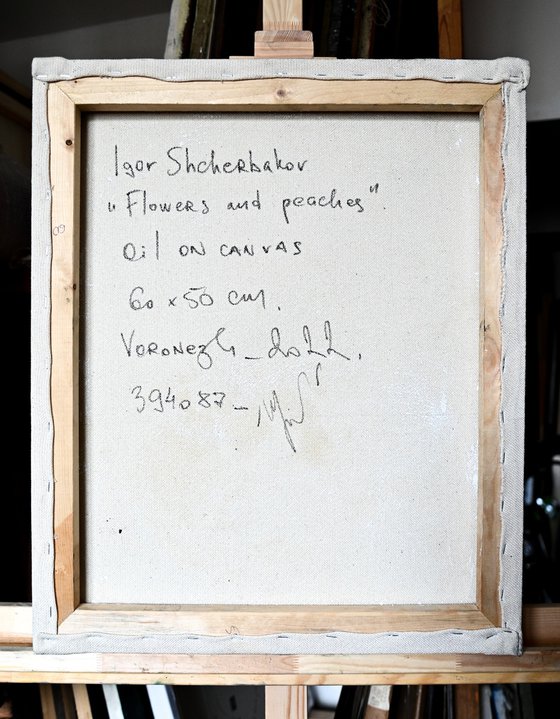 Igor Shcherbakov
„Flowers and peaches".
Oil ON CANVAS
60 x 50 cm.
VORONEZh _ 2022.
394087 _